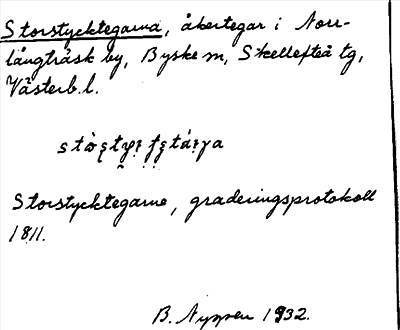 Storstycktegarna, åkertegar i Norr-
långträsk by, Byske sn, Skellefteå tg,
Västerb. l.
Storstycktegarne, graderingsprotokoll
1811.
B. Nyppen 1932.